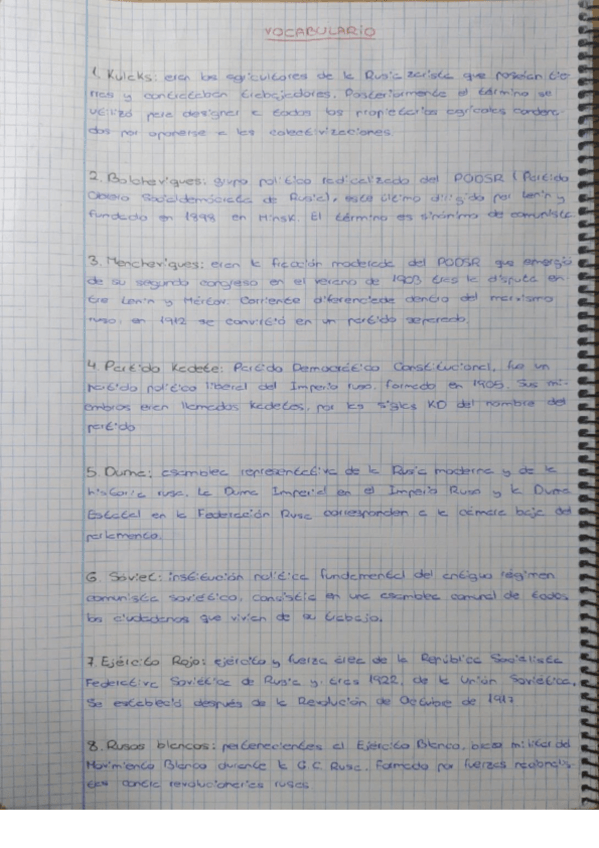 VOCABULARIO
1. Kulaks: eran los agricultores de la Rusia zarista que poseían tie-
rras y contrataban trabajadores. Posteriormente el término se
utilizó para designar a todos los propietarios agrícolas condena-
dos por oponerse a las colectivizaciones.
2. Bolcheviques: grupo político radicalizado del POSDR (Partido
Obrero Socialdemócrata de Rusia), este último dirigido por Lenin y
fundado en 1898 en Minsk. El término es sinónimo de comunista
3. Mencheviques: eran la facción moderada del POSDR que emergió
de su segundo congreso en el verano de 1903 tras la disputa en-
tre Lenin y Mártov. Corriente diferenciada dentro del marxismo
ruso, en 1912 se convirtió en un partido separado.
4. Partido Kadete: Partido Democrático Constitucional, fue un
partido político liberal del Imperio ruso, formado en 1905. Sus mi-
embros eran llamados kadetes, por las siglas KD del nombre del
partido
5. Duma: asamblea representativa de la Rusia moderna y de la
historia rusa. La Duma Imperial en el Imperio Ruso y la Duma
Estatal en la Federación Rusa corresponden a la cámara baja del
parlamento.
6. Soviet: institución política fundamental del antiguo régimen
comunista soviético, consistía en una asamblea comunal de todos
los ciudadanos que vivían de su trabajo.
7. Ejército Rojo: ejército y fuerza aérea de la República Socialista
Federativa Soviética de Rusia y, tras 1922, de la Unión Soviética.
Se estableció después de la Revolución de Octubre de 1917
8. Rusos blancos: pertenecientes al Ejército Blanco, brazo militar del
Movimiento Blanco durante la G.C. Rusa. Formada por fuerzas nacionalis-
tas contra revolucionarias rusas